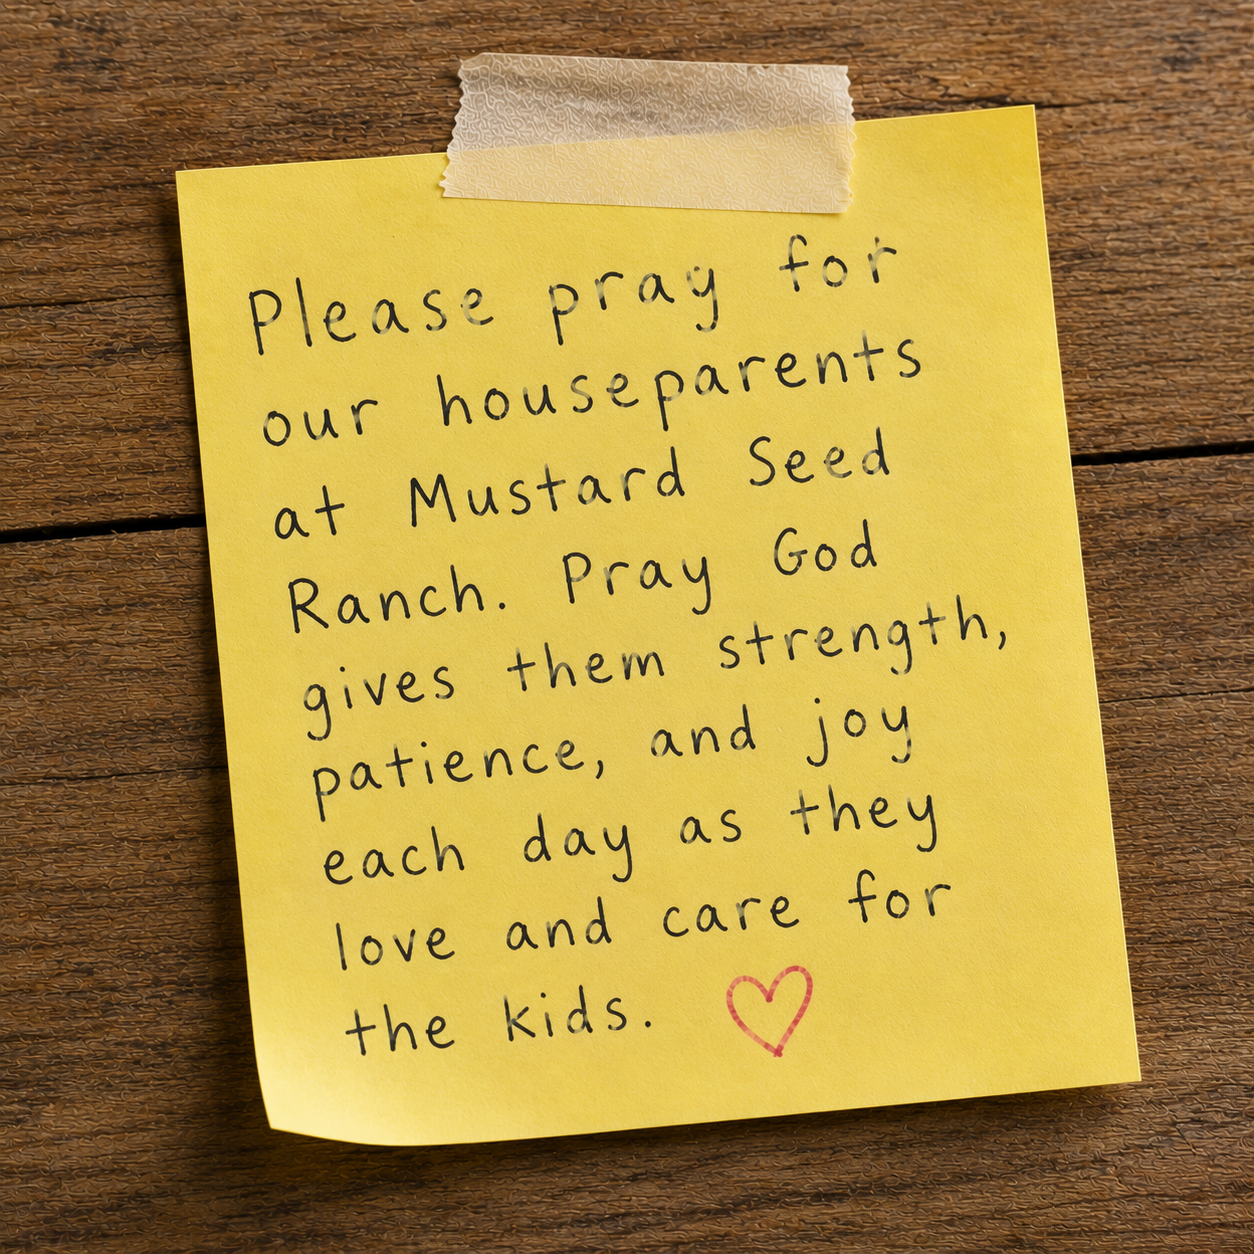 Please pray for
our houseparents
at Mustard Seed
Ranch. Pray God
gives them strength,
patience, and joy
each day as they
love and care for
the kids.